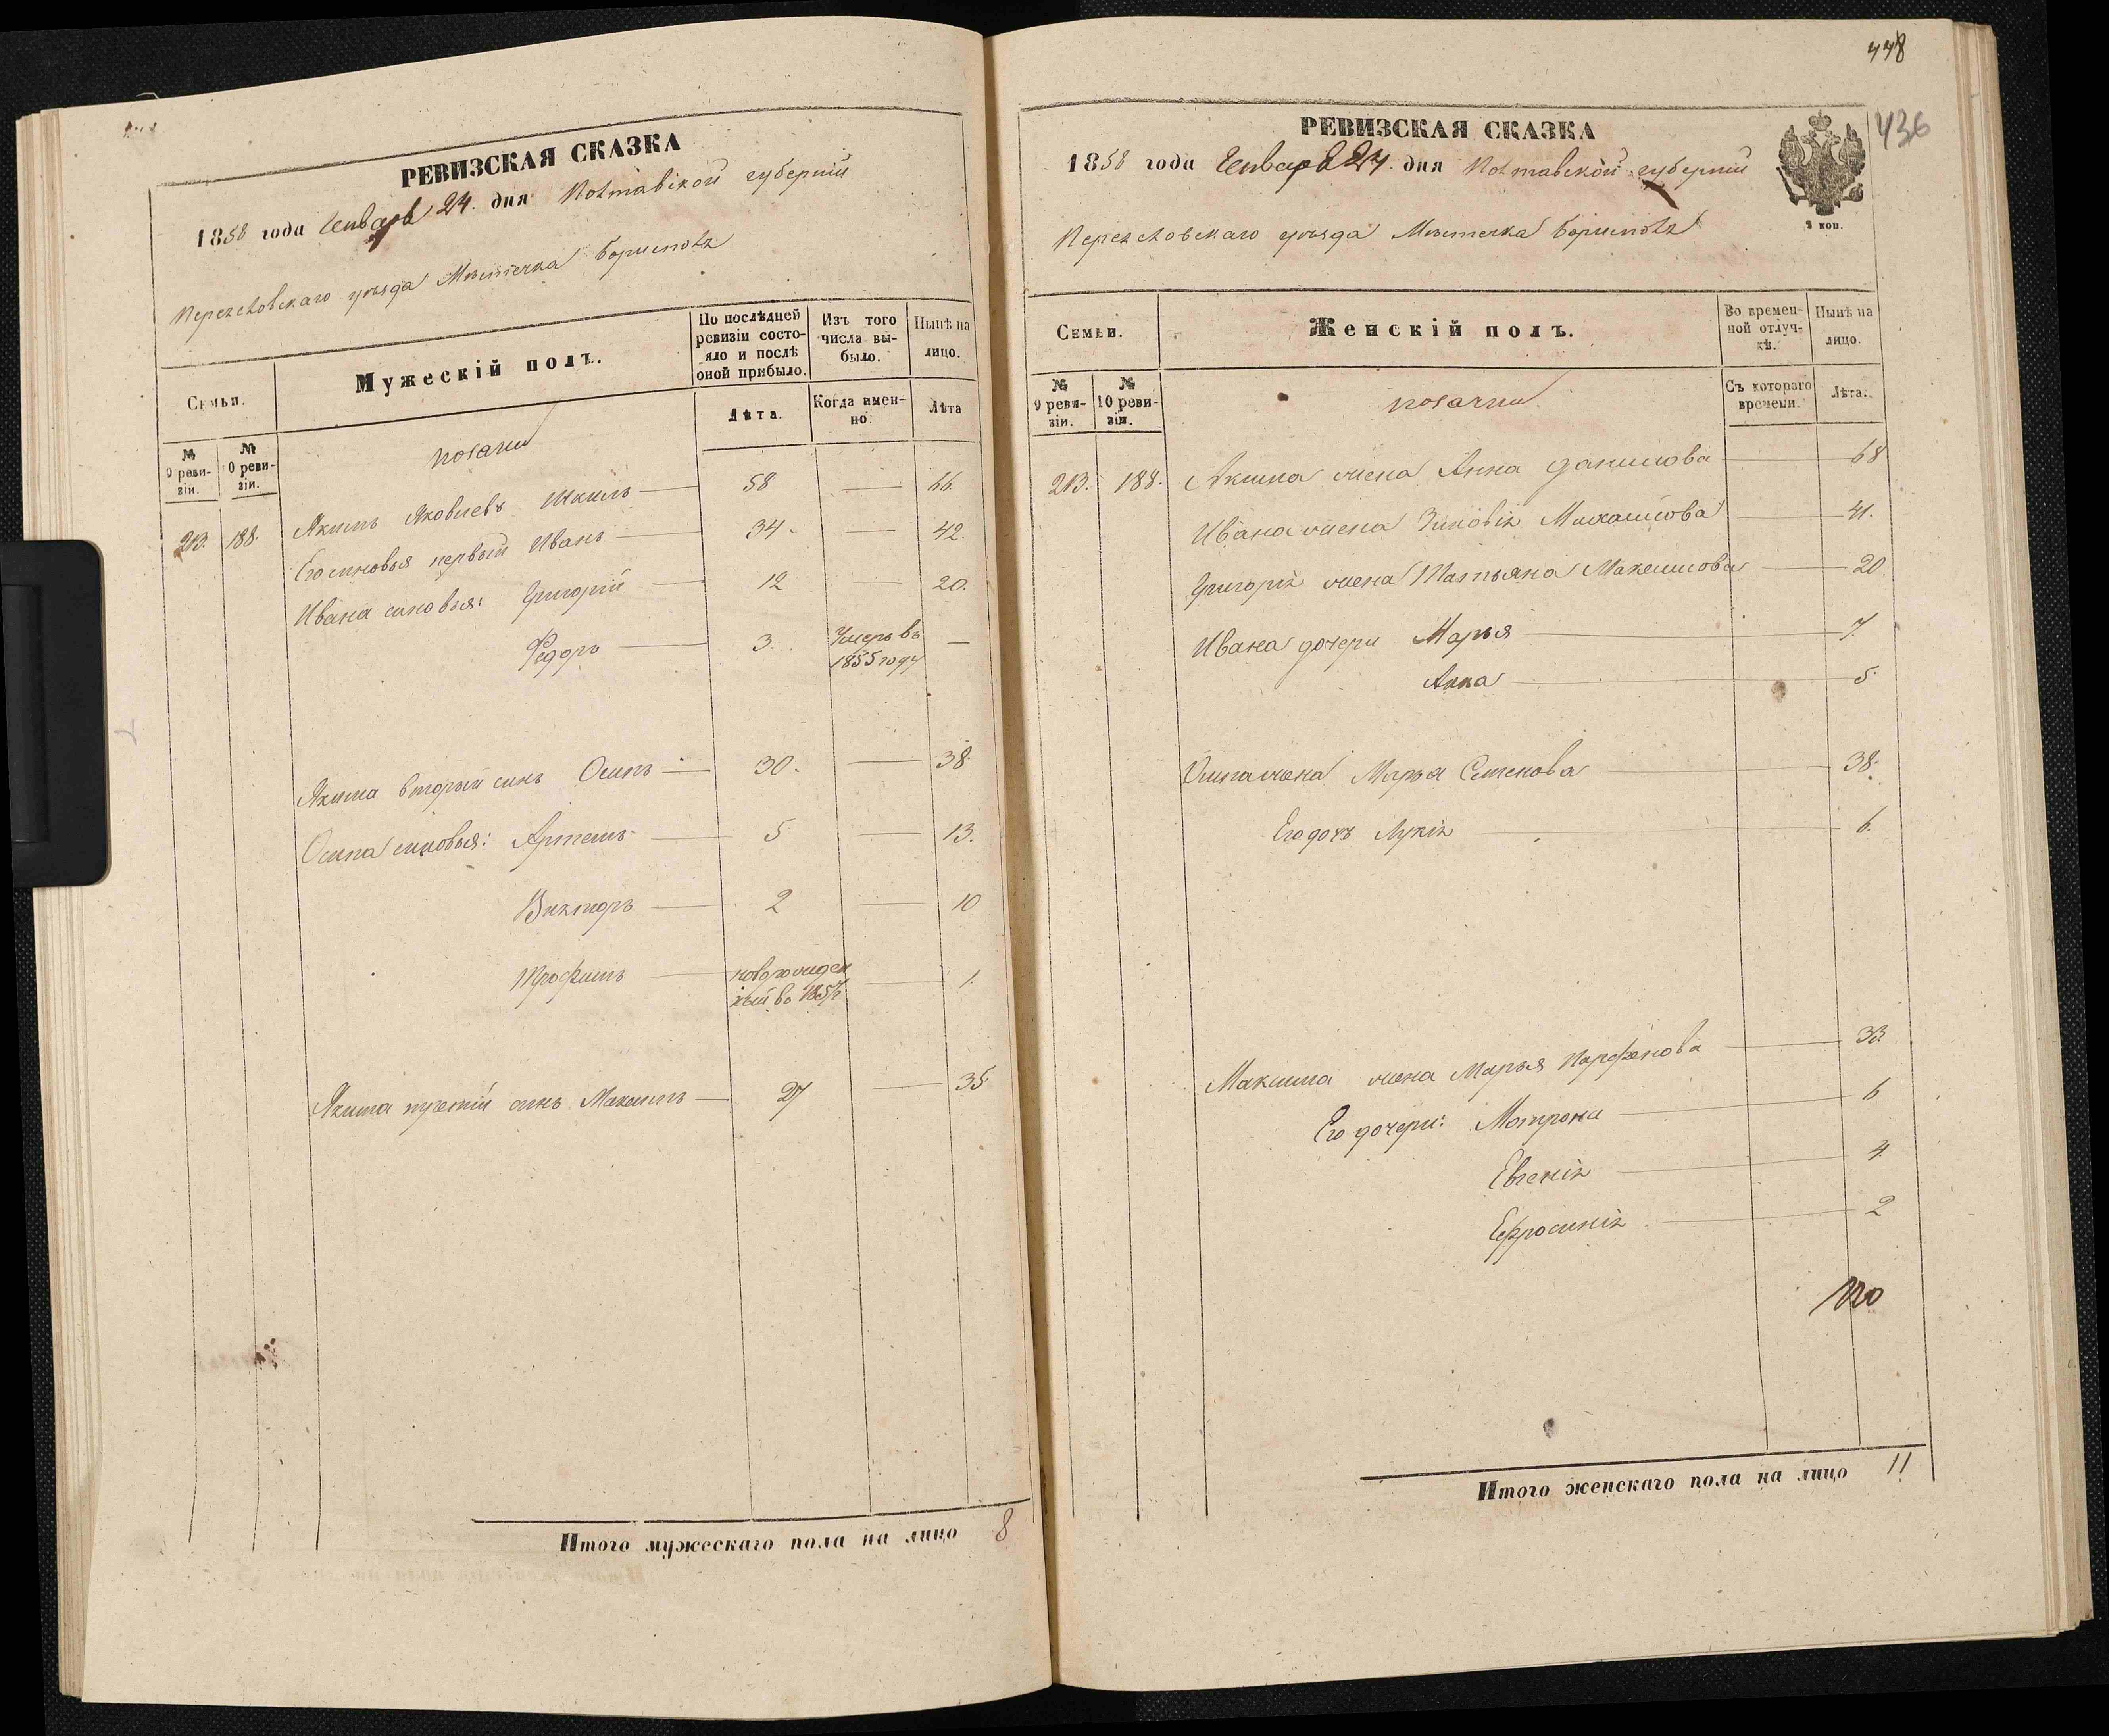 РЕВИЗСКАЯ СКАЗКА
1858 года Генваря 24. дня Полтавской губерніи
Переяславскаго уѣзда Мѣстечка Борисполя
Семьи.
Мужескій полъ.
По послѣдней ревизіи состояло и послѣ оной прибыло.
Изъ того числа выбыло.
Нынѣ на лицо.
№ 9 ревизіи.
№ 10 ревизіи.
Лѣта.
Когда именно.
Лѣта
козаки
213. 188. Якимъ Яковлевъ Шкиль — 58 — 66.
Его сыновья первый Иванъ — 34. — 42.
Ивана сыновья: Григорій — 12 — 20.
Федоръ — 3. Умеръ въ 1855 году —
Якима вторый сынъ Осипъ — 30. — 38.
Осипа сыновья: Артемъ — 5 — 13.
Викторъ — 2 — 10
Трофимъ — новорожден ный въ 1857 — 1.
Якима третій сынъ Максимъ — 27 — 35.
Итого мужескаго пола на лицо 8
448
436
РЕВИЗСКАЯ СКАЗКА
1858 года Генваря 24. дня Полтавской губерніи
2 коп.
Переяславскаго уѣзда Мѣстечка Борисполя
Семьи.
Женскій полъ.
Во временной отлучкѣ.
Нынѣ на лицо.
№ 9 ревизіи.
№ 10 ревизіи.
Съ котораго времени.
Лѣта.
козачки
213. 188. Акима жена Анна Данилова — 68
Ивана жена Зиновія Михайлова — 41.
Григорія жена Татьяна Максимова — 20.
Ивана дочери Марья — 7.
Анна — 5.
Осипа жена Марья Семенова — 38.
Его дочь Лукія — 6.
Максима жена Марья Парфенова — 33
Его дочери: Матрона — 6
Евгенія — 4.
Ефросинія — 2
Итого женскаго пола на лицо 11